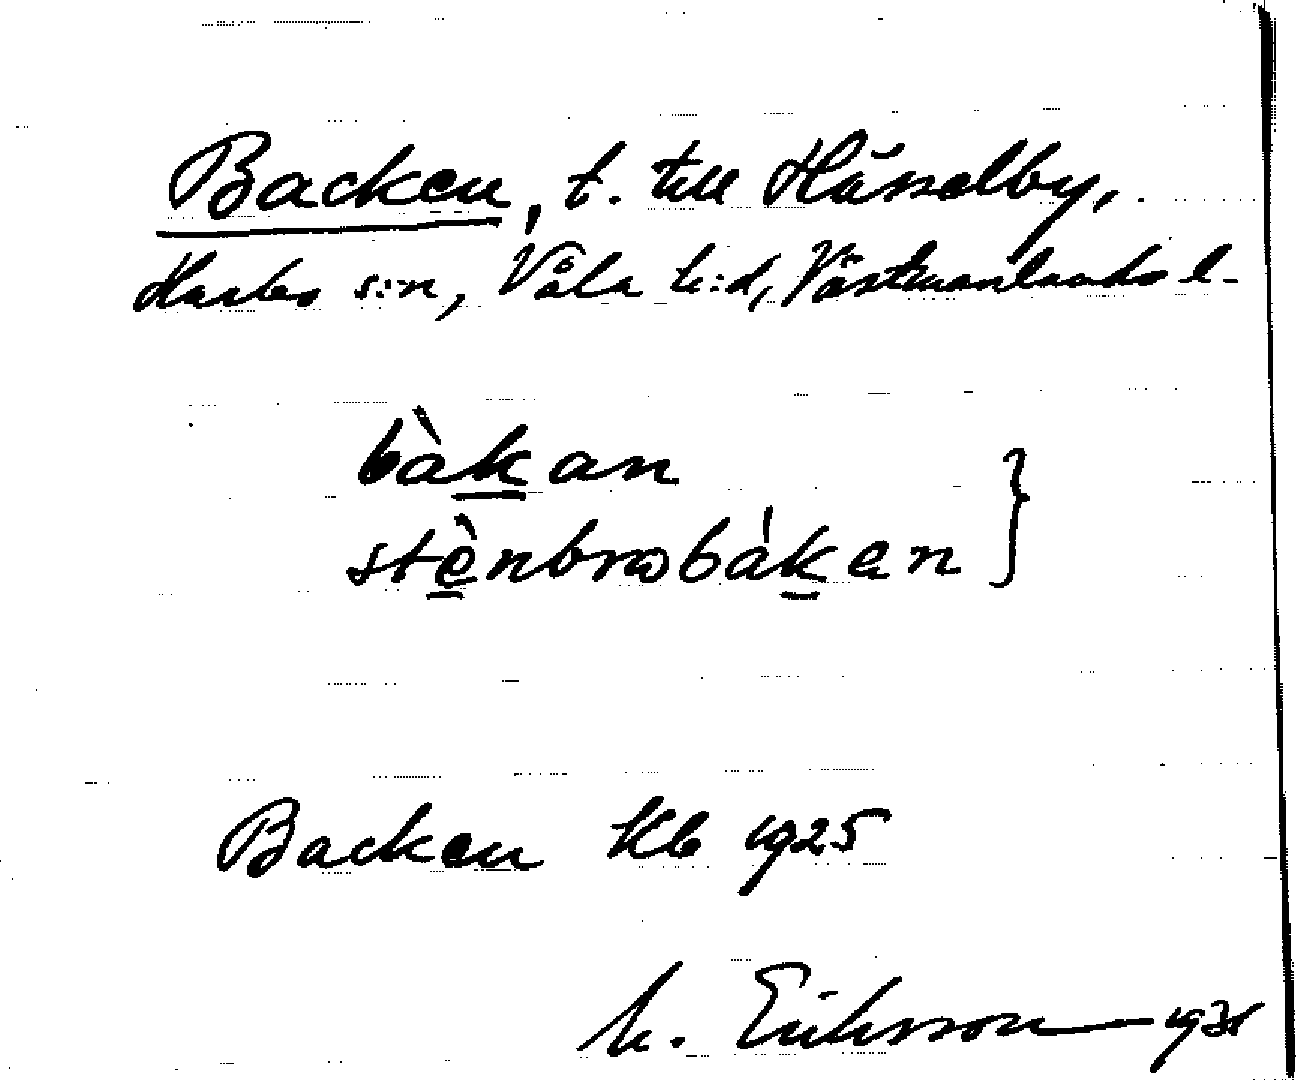 Backen, t. till Hässelby,
Harbo s:n, Våla h:d, Västmanlands l.
bàkan
stènbrobákan }
Backen Kb 1925
M. Eriksson 193